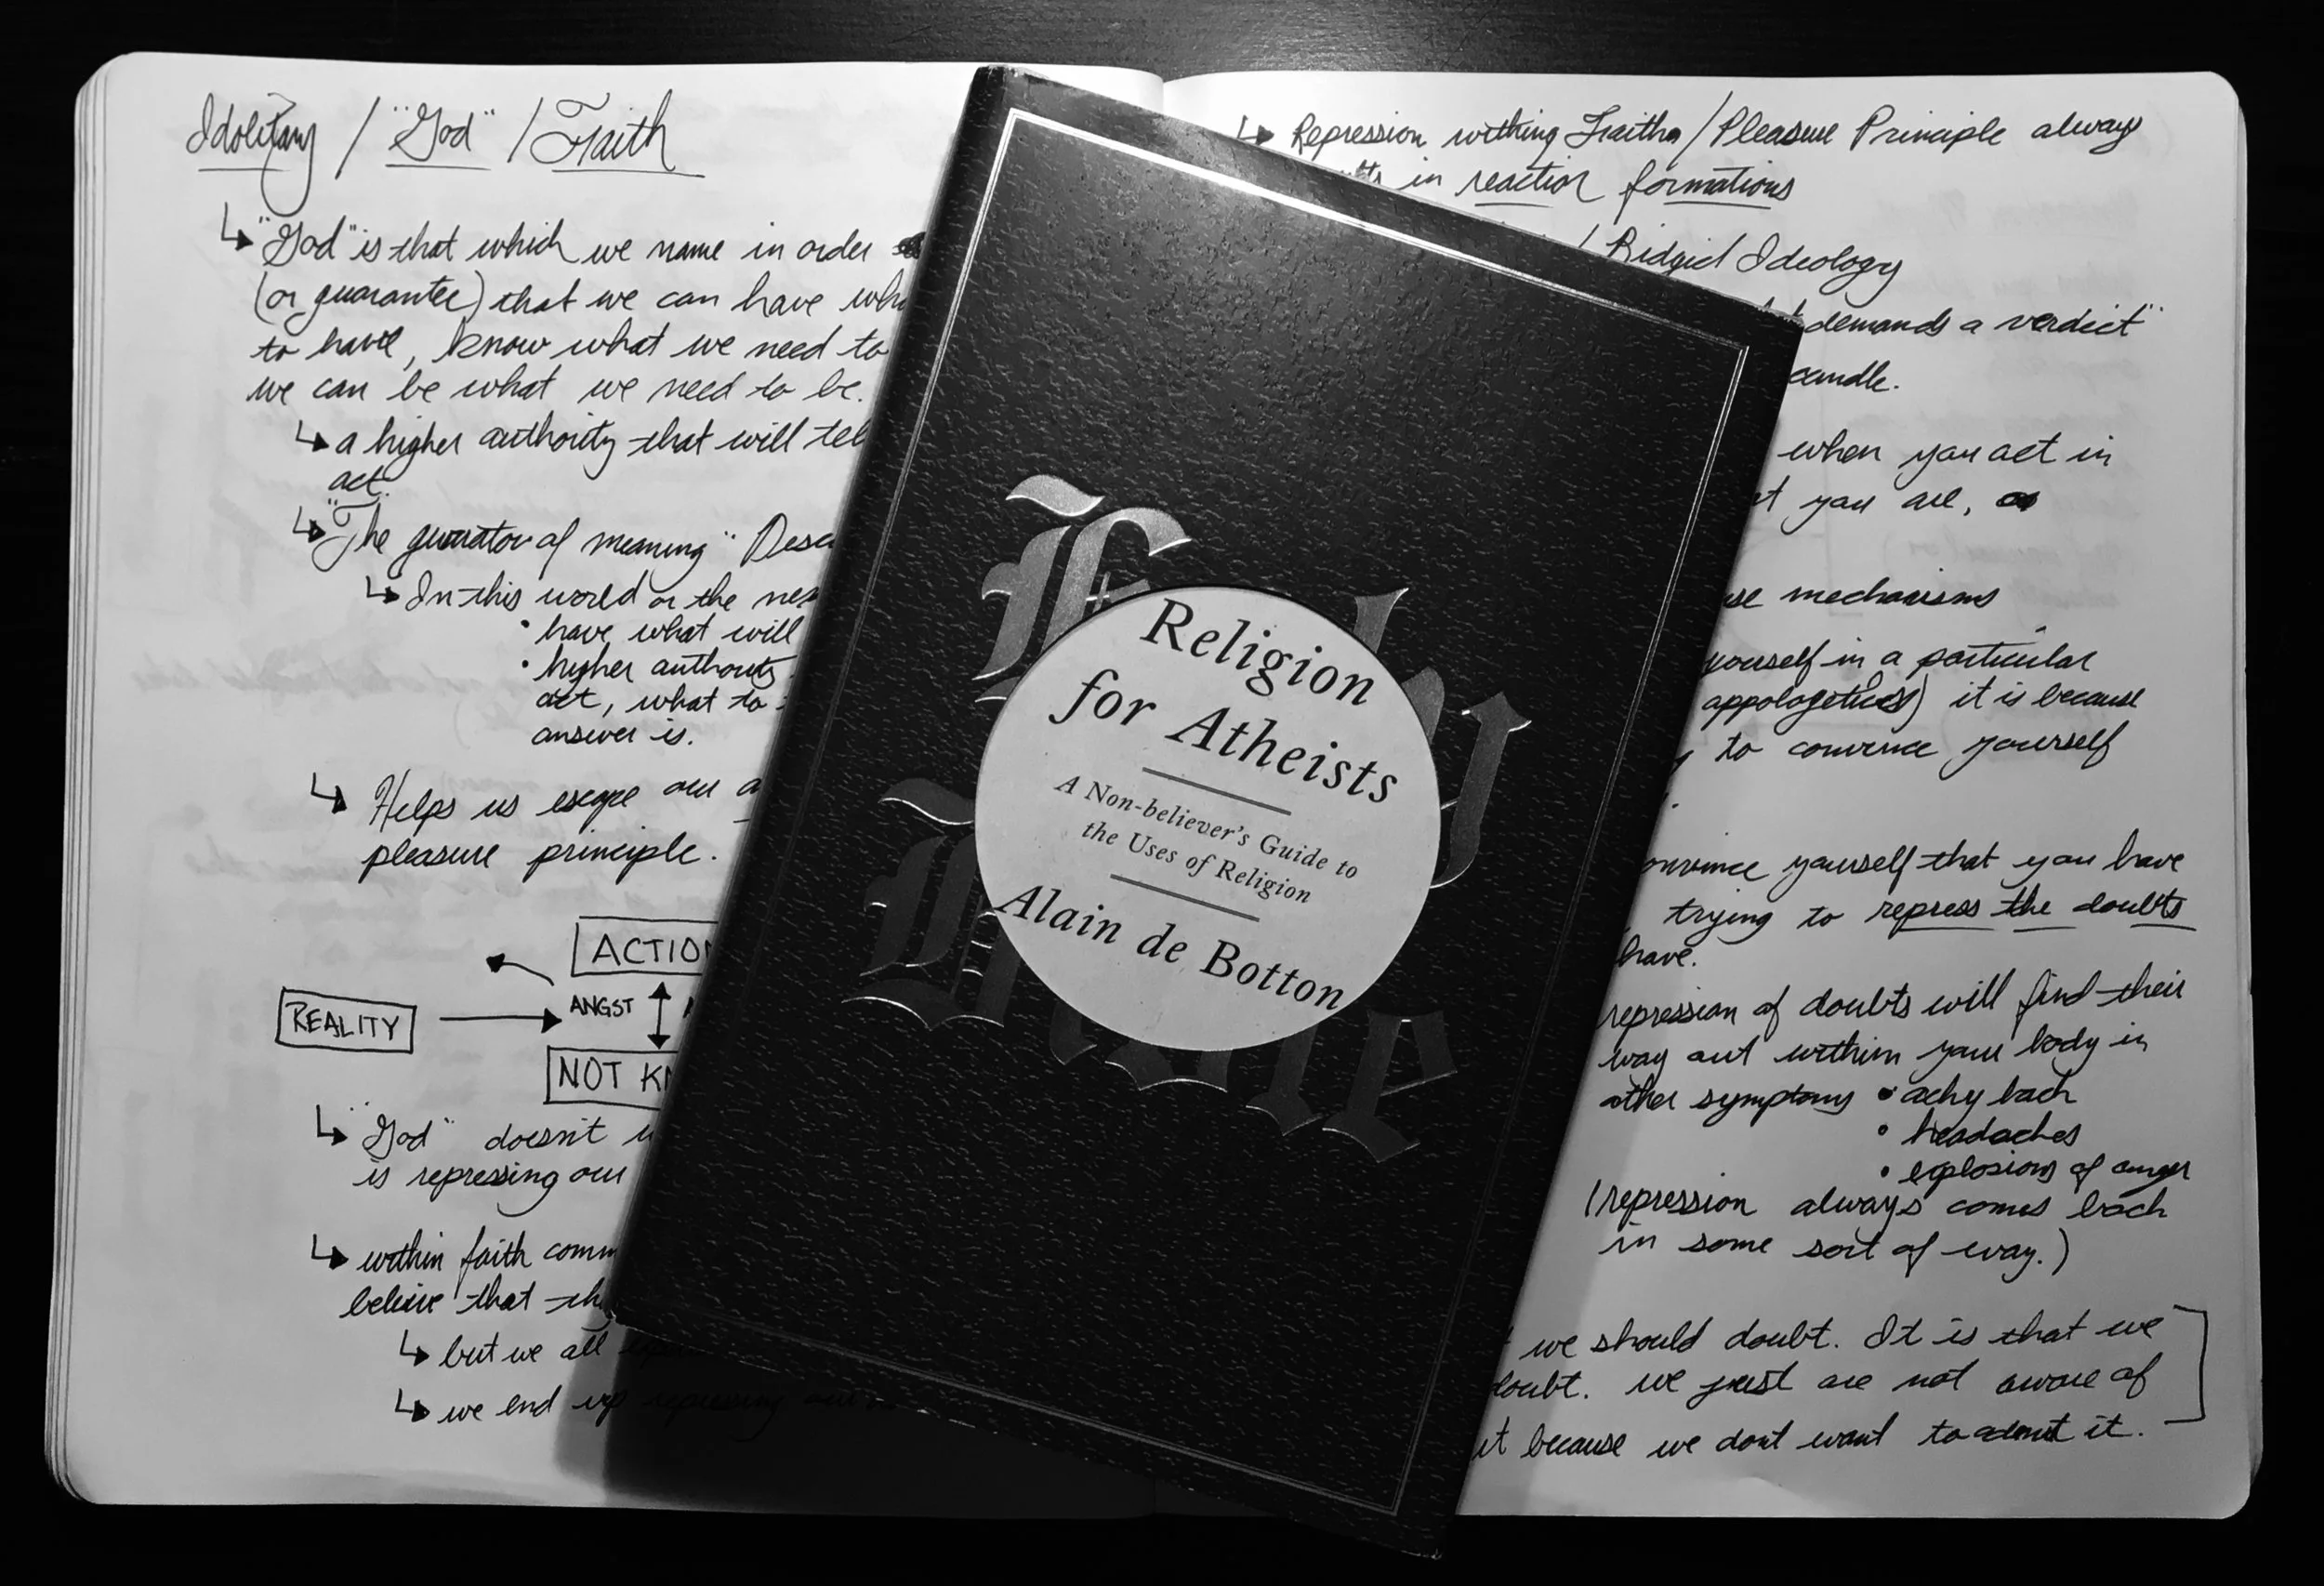 Idolitary / "God" / Faith
↳ "God" is that which we name in order
(or guarantee) that we can have
to have, know what we need to
we can be what we need to be.
↳ a higher authority that will
act.
↳ "The gurator of meaning"
↳ In this world or the
• have what will
• higher authority
act, what to
answer is.
↳ Helps us escape our
pleasure principle.
REALITY
ANGST
NOT
↳ "God" doesn't
is repressing our
↳ within faith
believe that
↳ but we all
↳ we end up repressing our
Holy
Bible
Religion
for Atheists
A Non-believer's Guide to
the Uses of Religion
Alain de Botton
↳ Repression withing Faiths / Pleasure Principle always
in reaction formations
/ Ridgid Ideology
demands a verdict"
when you act in
you are,
mechanisms
yourself in a particular
appologetics) it is because
to convince yourself
yourself that you have
trying to repress the doubts
have.
repression of doubts will find their
way out within your body in
other symptoms • achy back
• headaches
• explosions of anger
(repression always comes back
in some sort of way.)
we should doubt. It is that we
doubt. we just are not aware of
it because we dont want to admit it.